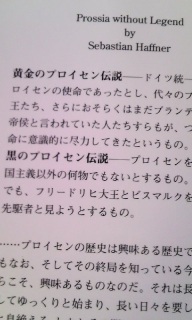 Prossia without Legend
by
Sebastian Haffner
黄金のプロイセン伝説――ドイツ統一
ロイセンの使命であったとし、代々のプ
王たち、さらにおそらくはまだブランデ
帝侯と言われていた人たちすらもが、つ
命に意識的に尽力してきたというもの。
黒のプロイセン伝説――プロイセンを
国主義以外の何物でもないとするもの。
でも、フリードリヒ大王とビスマルクを
先駆者と見ようとするもの。
……プロイセンの歴史は興味ある歴史で
もなお、そしてその終局を知っている今
ちこそ、興味あるものなのだ。それは長
してゆっくりと始まり、長い日々を要し